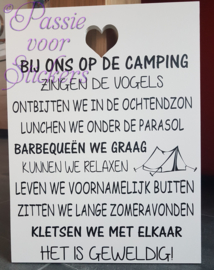 Passie
voor
Stickers
BIJ ONS OP DE CAMPING
ZINGEN DE VOGELS
ONTBIJTEN WE IN DE OCHTENDZON
LUNCHEN WE ONDER DE PARASOL
BARBEQUEËN WE GRAAG
KUNNEN WE RELAXEN
LEVEN WE VOORNAMELIJK BUITEN
ZITTEN WE LANGE ZOMERAVONDEN
KLETSEN WE MET ELKAAR
HET IS GEWELDIG!